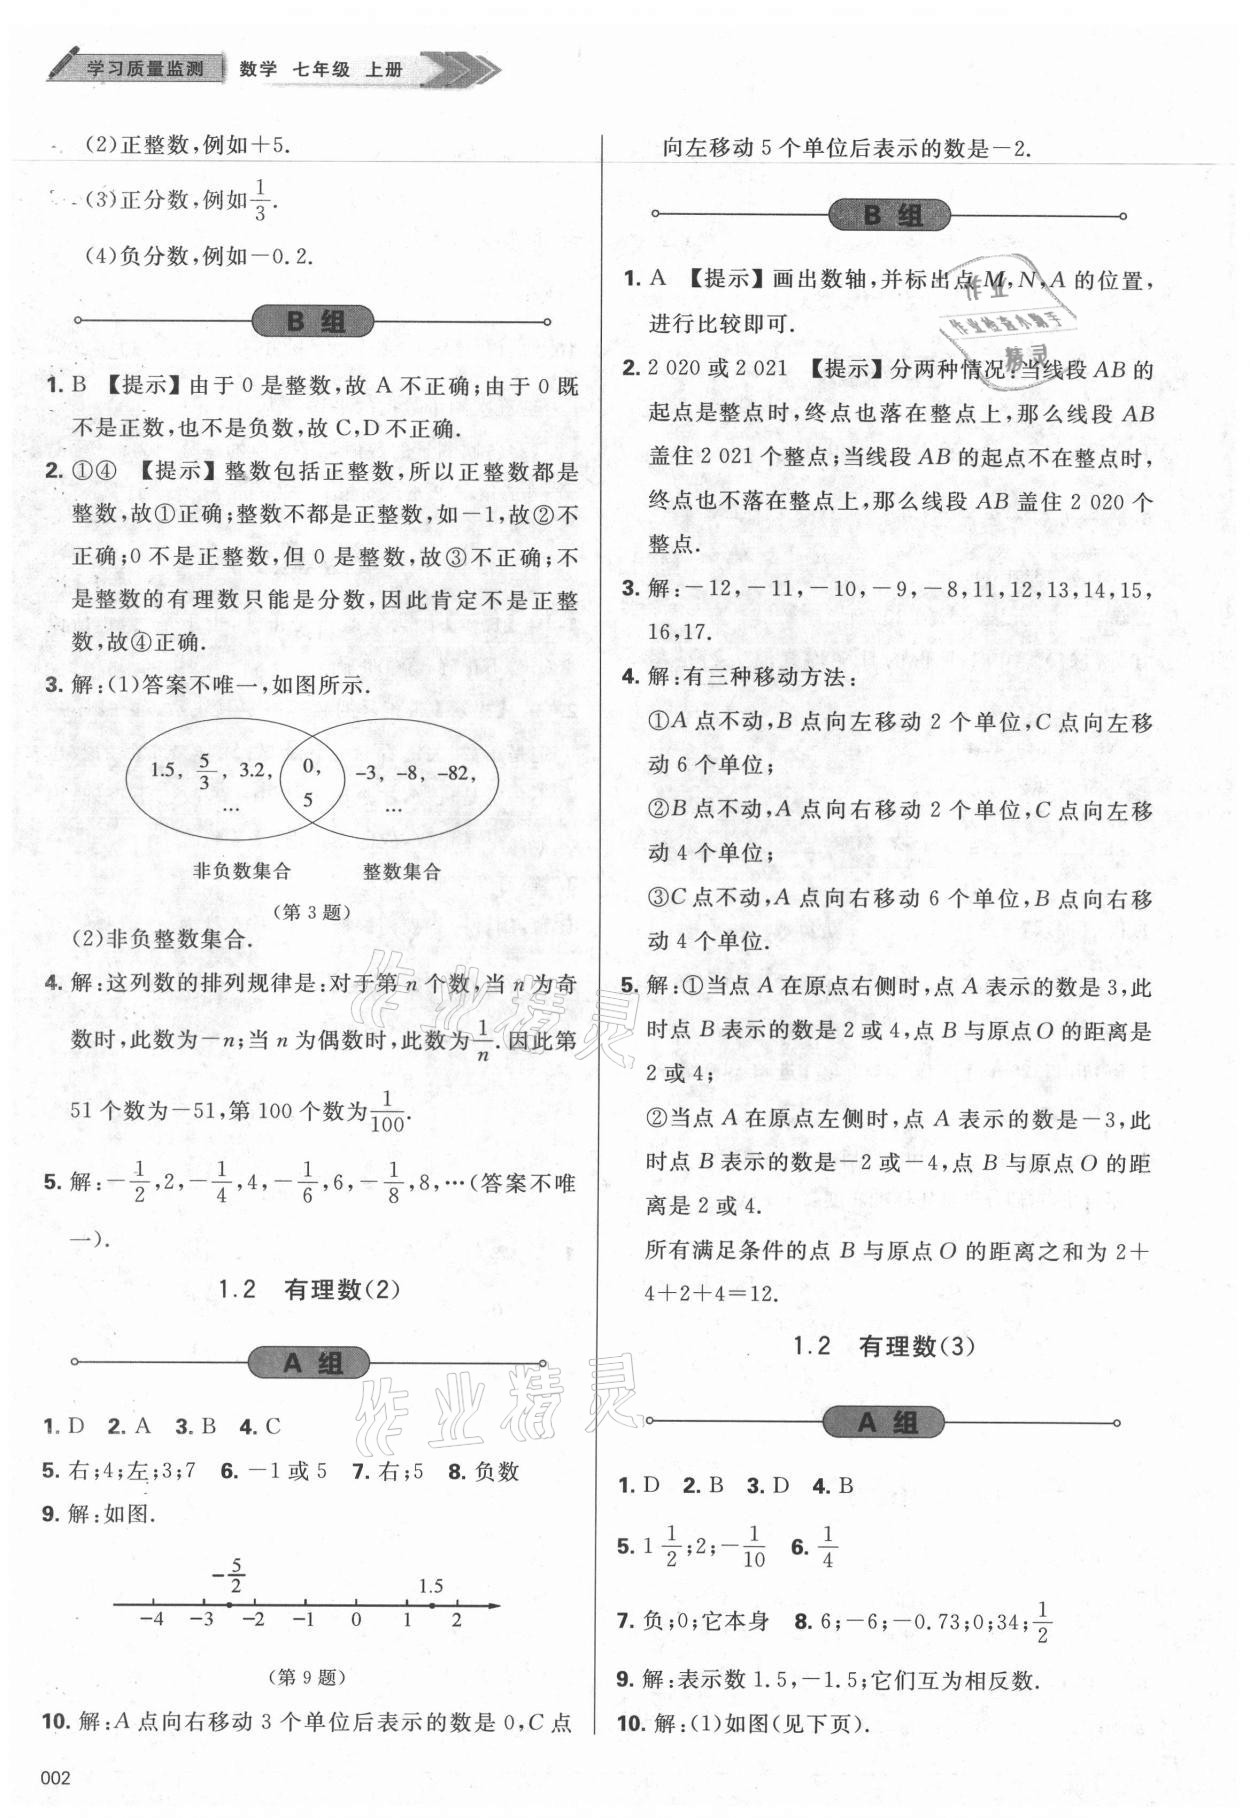 学习质量监测 数学 七年级 上册
(2)正整数,例如+5.
(3)正分数,例如1/3.
(4)负分数,例如-0.2.
B 组
1. B 【提示】由于 0 是整数,故 A 不正确;由于 0 既
不是正数,也不是负数,故 C,D 不正确.
2. ①④ 【提示】整数包括正整数,所以正整数都是
整数,故①正确;整数不都是正整数,如-1,故②不
正确;0 不是正整数,但 0 是整数,故③不正确;不
是整数的有理数只能是分数,因此肯定不是正整
数,故④正确.
3. 解:(1)答案不唯一,如图所示.
1.5, 5/3, 3.2, 0, -3, -8, -82,
… 5 …
非负数集合 整数集合
(第 3 题)
(2)非负整数集合.
4. 解:这列数的排列规律是:对于第 n 个数,当 n 为奇
数时,此数为-n;当 n 为偶数时,此数为1/n.因此第
51 个数为-51,第 100 个数为1/100.
5. 解:-1/2,2,-1/4,4,-1/6,6,-1/8,8,…(答案不唯
一).
1.2 有理数(2)
A 组
1. D 2. A 3. B 4. C
5. 右;4;左;3;7 6. -1或5 7. 右;5 8. 负数
9. 解:如图.
-5/2 1.5
-4 -3 -2 -1 0 1 2
(第 9 题)
10. 解:A 点向右移动 3 个单位后表示的数是 0,C 点
002
向左移动 5 个单位后表示的数是-2.
B 组
1. A 【提示】画出数轴,并标出点 M,N,A 的位置,
进行比较即可.
2. 2 020 或 2 021 【提示】分两种情况:当线段 AB 的
起点是整点时,终点也落在整点上,那么线段 AB
盖住 2 021 个整点;当线段 AB 的起点不在整点时,
终点也不落在整点上,那么线段 AB 盖住 2 020 个
整点.
3. 解:-12,-11,-10,-9,-8,11,12,13,14,15,
16,17.
4. 解:有三种移动方法:
①A 点不动,B 点向左移动 2 个单位,C 点向左移
动 6 个单位;
②B 点不动,A 点向右移动 2 个单位,C 点向左移
动 4 个单位;
③C 点不动,A 点向右移动 6 个单位,B 点向右移
动 4 个单位.
5. 解:①当点 A 在原点右侧时,点 A 表示的数是 3,此
时点 B 表示的数是 2 或 4,点 B 与原点 O 的距离是
2 或 4;
②当点 A 在原点左侧时,点 A 表示的数是-3,此
时点 B 表示的数是-2 或-4,点 B 与原点 O 的距
离是 2 或 4.
所有满足条件的点 B 与原点 O 的距离之和为 2+
4+2+4=12.
1.2 有理数(3)
A 组
1. D 2. B 3. D 4. B
5. 1 1/2;2;-1/10 6. 1/4
7. 负;0;它本身 8. 6;-6;-0.73;0;34;1/2
9. 解:表示数 1.5,-1.5;它们互为相反数.
10. 解:(1)如图(见下页).
作业
作业检查小助手
精灵
作业精灵
作业精灵